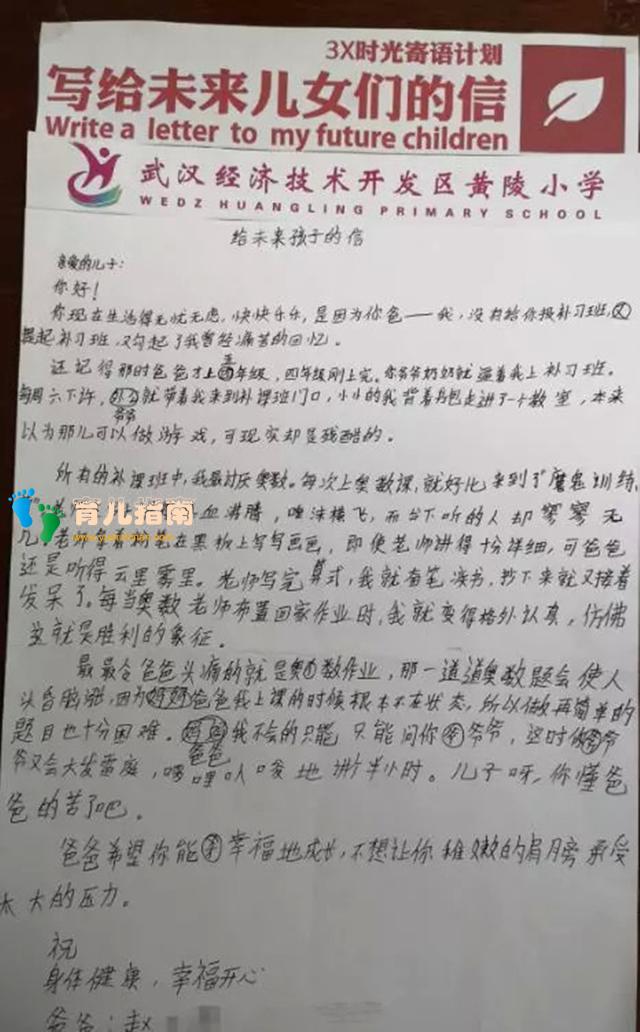 3X时光寄语计划
写给未来儿女们的信
Write a letter to my future children
武汉经济技术开发区黄陵小学
WEDZ HUANGLING PRIMARY SCHOOL
给未来孩子的信
亲爱的儿子：
你好！
你现在生活得无忧无虑，快快乐乐，是因为你爸——我，没有给你报补习班，
提起补习班，又勾起了我曾经痛苦的回忆。
还记得那时爸爸才上五年级，四年级刚上完。你爷爷奶奶就逼着我上补习班。
每周六下午，爷爷就带着我来到补课班门口，小小的我背着书包走进了一个教室，本来
以为那儿可以做游戏，可现实却是残酷的。
所有的补课班中，我最讨厌奥数。每次上奥数课，就好比来到了"魔鬼训练
血沸腾，唾沫横飞，而台下听的人却寥寥无
几。老师拿着粉笔在黑板上写写画画，即使老师讲得十分详细，可爸爸
还是听得云里雾里。老师写完算式，我就奋笔疾书，抄下来就又接着
发呆了。每当奥数老师布置回家作业时，我就变得格外认真，仿佛
这就是胜利的象征。
最最令爸爸头痛的就是奥数作业，那一道道奥数题会使人
头昏脑涨，因为爸爸我上课的时候根本不在状态，所以做再简单的
题目也十分困难。爸爸我不会的只能只能问你爷爷，这时你爷
爷又会大发雷霆，啰哩八嗦地讲个半小时。儿子呀，你懂爸
爸的苦了吧。
爸爸希望你能幸福地成长，不想让你稚嫩的肩膀承受
太大的压力。
祝
身体健康，幸福开心
爸爸：赵
育儿指南